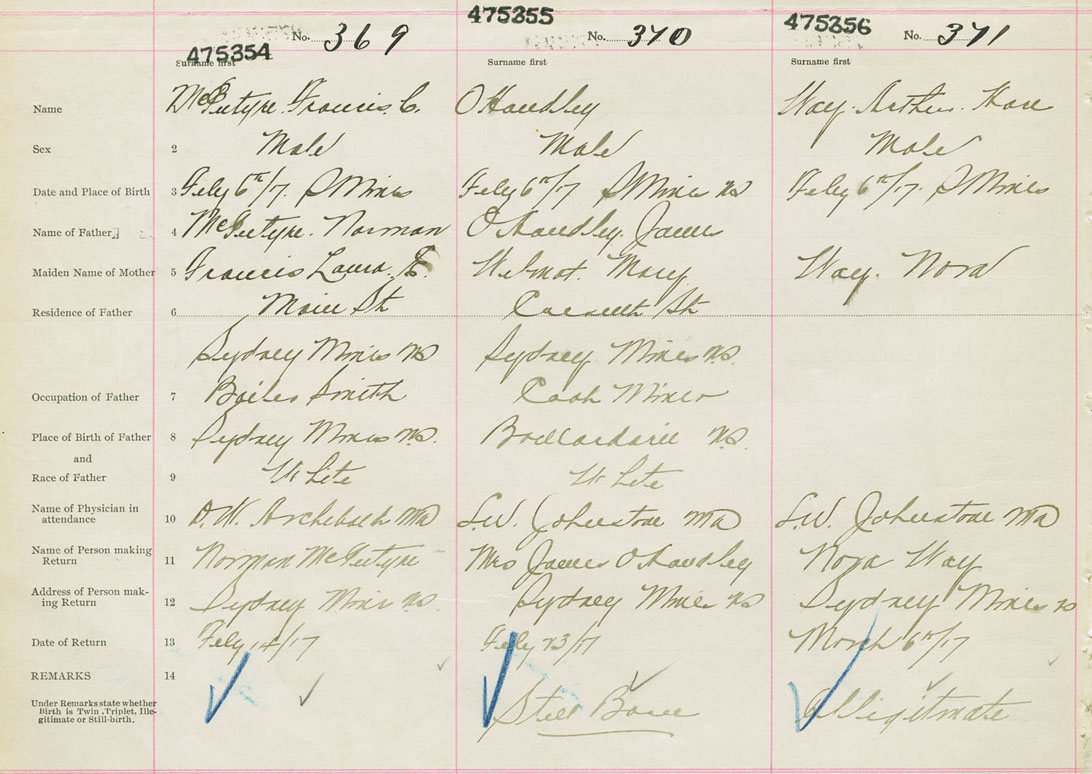 475354 No. 369 475355 No. 370 475356 No. 371
Surname first Surname first Surname first
Name McIntyre Francis. C. O Handley Way. Arthur.
Sex 2 Male Male Male
Date and Place of Birth 3 Feby 6th/17. S Mines Feby 6th/17 S Mines NS Feby 6th/17. S Mines
Name of Father 4 McIntyre. Norman O Handley. James
Maiden Name of Mother 5 Francis Laura. Wilmot. Mary Way. Nora
Residence of Father 6 Main St St
Sydney Mines NS Sydney Mines NS.
Occupation of Father 7 Boiler Smith Coal Miner
Place of Birth of Father 8 Sydney Mines NS. NS
and
Race of Father 9 White White
Name of Physician in
attendance 10 D. W. Archibald MD S.W. Johnstone MD S.W. Johnstone MD
Name of Person making
Return 11 Norman McIntyre Mrs James O Handley Nora Way
Address of Person mak-
ing Return 12 Sydney Mines NS. Sydney Mines NS Sydney Mines NS
Date of Return 13 Feby 14/17 Feby 23/17 March 6th/17
REMARKS 14
Under Remarks state whether
Birth is Twin, Triplet, Ille-
gitimate or Still-birth. Still Born Illigitmate